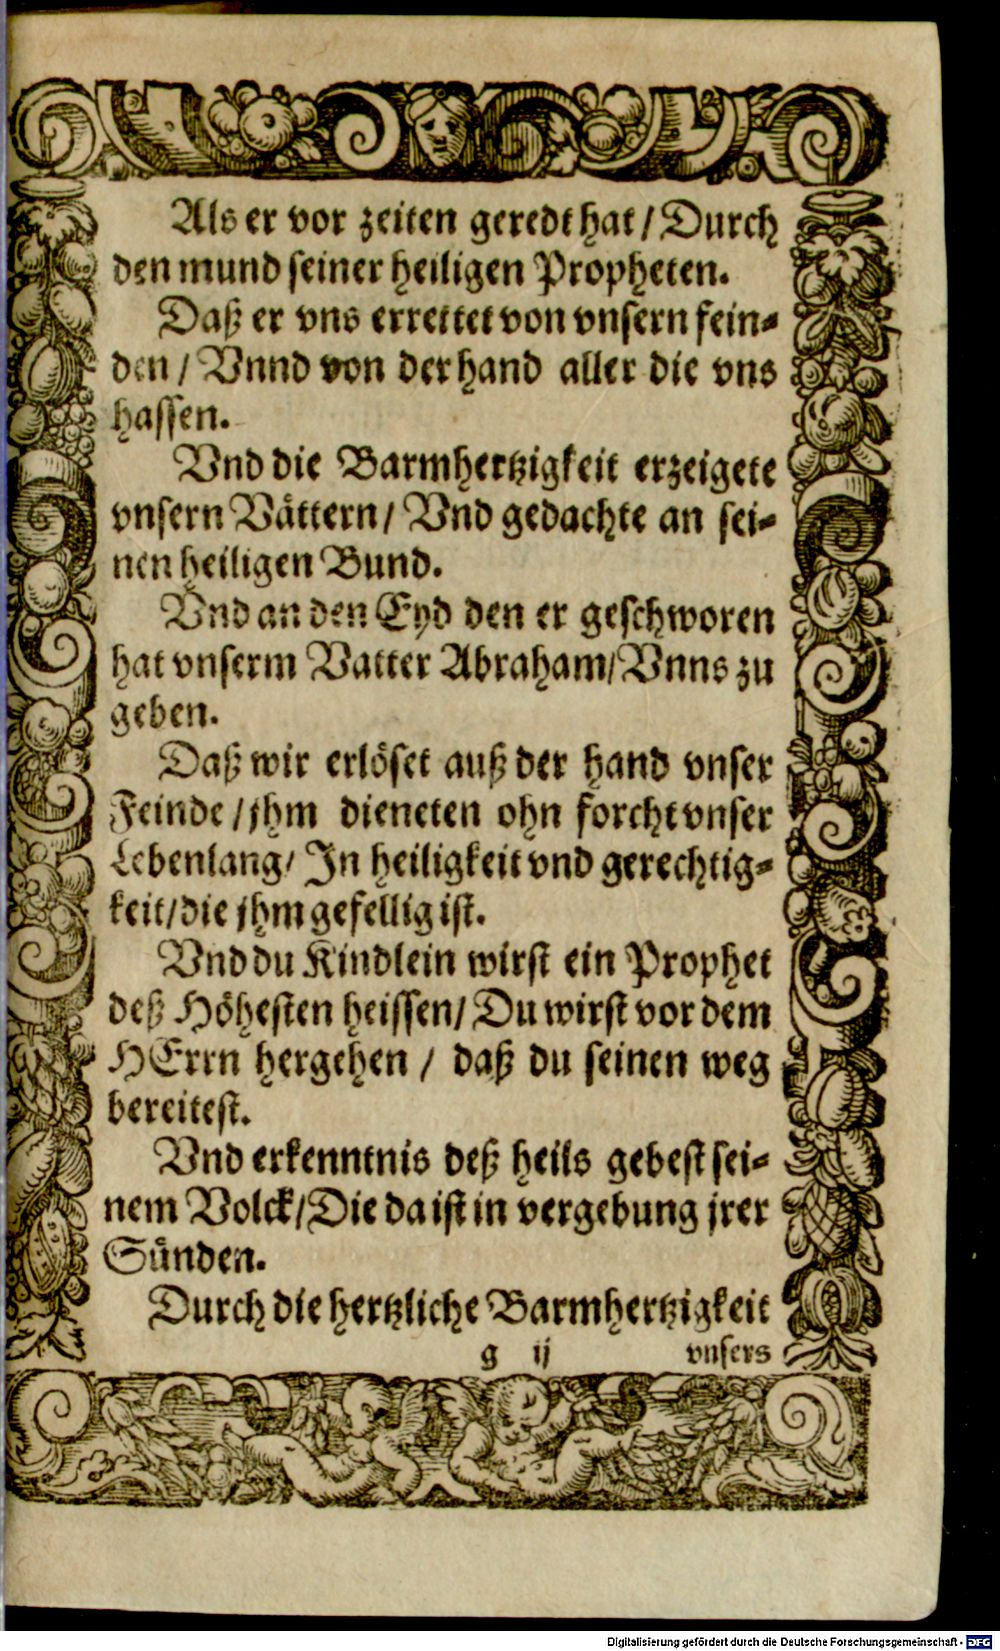 Als er vor zeiten geredt hat / Durch
den mund seiner heiligen Propheten.
Daß er vns errettet von vnsern fein⸗
den / Vnnd von der hand aller die vns
hassen.
Vnd die Barmhertzigkeit erzeigete
vnsern Vättern / Vnd gedachte an sei⸗
nen heiligen Bund.
Vnd an den Eyd den er geschworen
hat vnserm Vatter Abraham / Vnns zu
geben.
Daß wir erlöset auß der hand vnser
Feinde / jhm dieneten ohn forcht vnser
Lebenlang / In heiligkeit vnd gerechtig⸗
keit / die jhm gefellig ist.
Vnd du Kindlein wirst ein Prophet
deß Höhesten heissen / Du wirst vor dem
HErrn hergehen / daß du seinen weg
bereitest.
Vnd erkenntnis deß heils gebest sei⸗
nem Volck / Die da ist in vergebung jrer
Sünden.
Durch die hertzliche Barmhertzigkeit
g ij vnsers
Digitalisierung gefördert durch die Deutsche Forschungsgemeinschaft - DFG